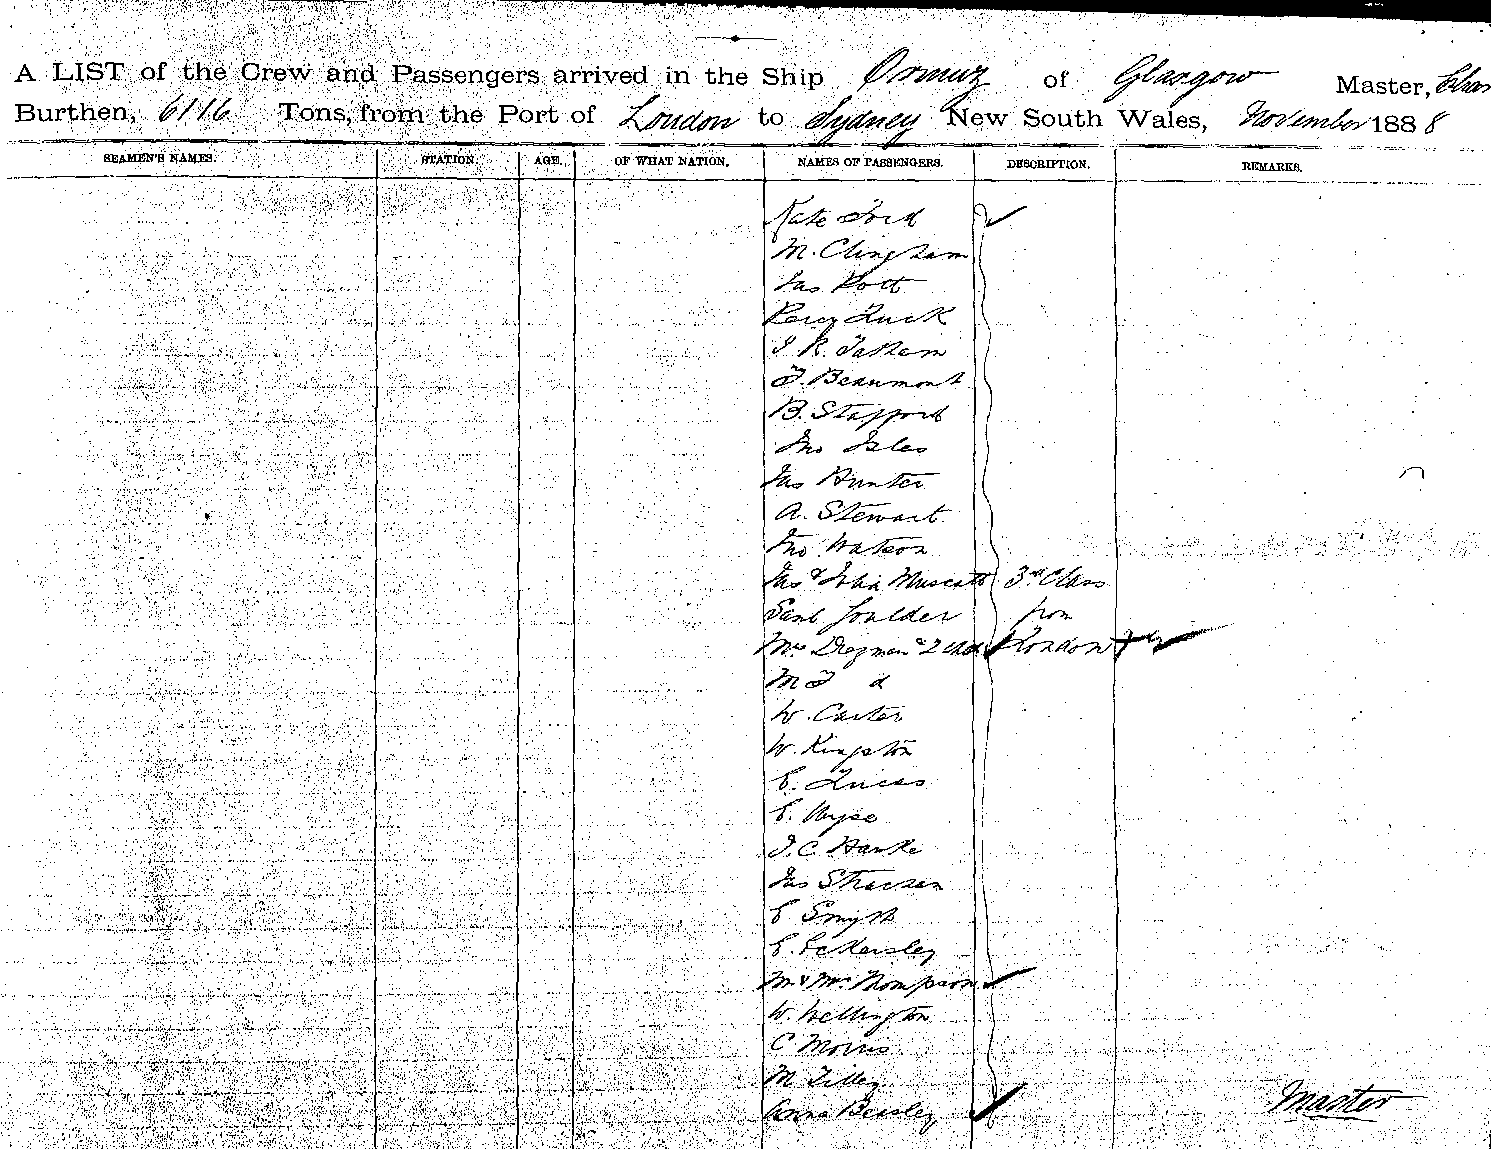 A LIST of the Crew and Passengers arrived in the Ship Ormuz of Glasgow Master, Chas
Burthen, 6116 Tons, from the Port of London to Sydney New South Wales, November 1888
SEAMEN'S NAMES. STATION. AGE. OF WHAT NATION. NAMES OF PASSENGERS. DESCRIPTION. REMARKS.
Kate Ford
M. Clingham
Jas Kott
Percy Luck
J. R. Tatham
F. Beaumont
B. Stafford
Jno Isles
Jas Hunter
A. Stewart
Jno Watson
Jas & John Muscatt 3rd Class
Saml Goulder from
Mrs & 2 London
M F d
W. Carter
W. Kingston
E. Lucas
E. Wyse
J. C. Hawke
Jas
E Smyth
E. Eckersley
Mr & Mrs Thompson
W. Wellington
C Morris
M Tilley
Anna Beasley
Master